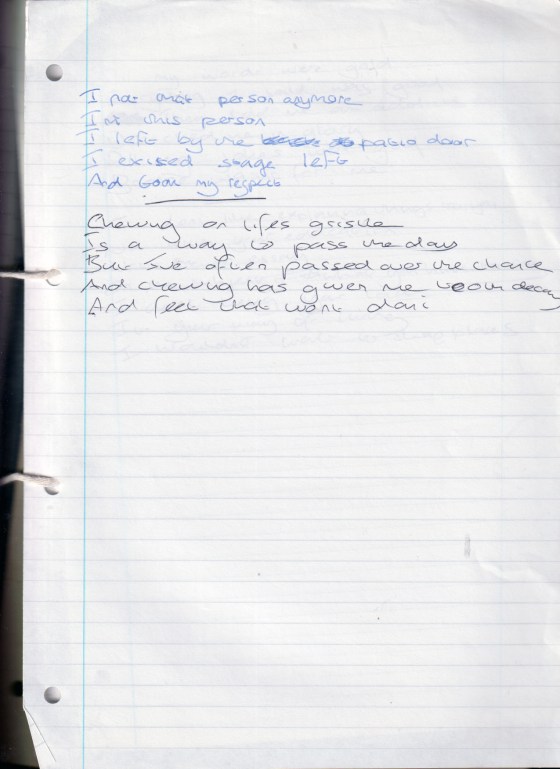 I not that person anymore
I'm this person
I left by the patio door
I exised stage left
And took my respect
Chewing on lifes gristle
Is a way to pass the days
But I've often passed over the chance
And chewing has given me tooth decay
And feet that wont